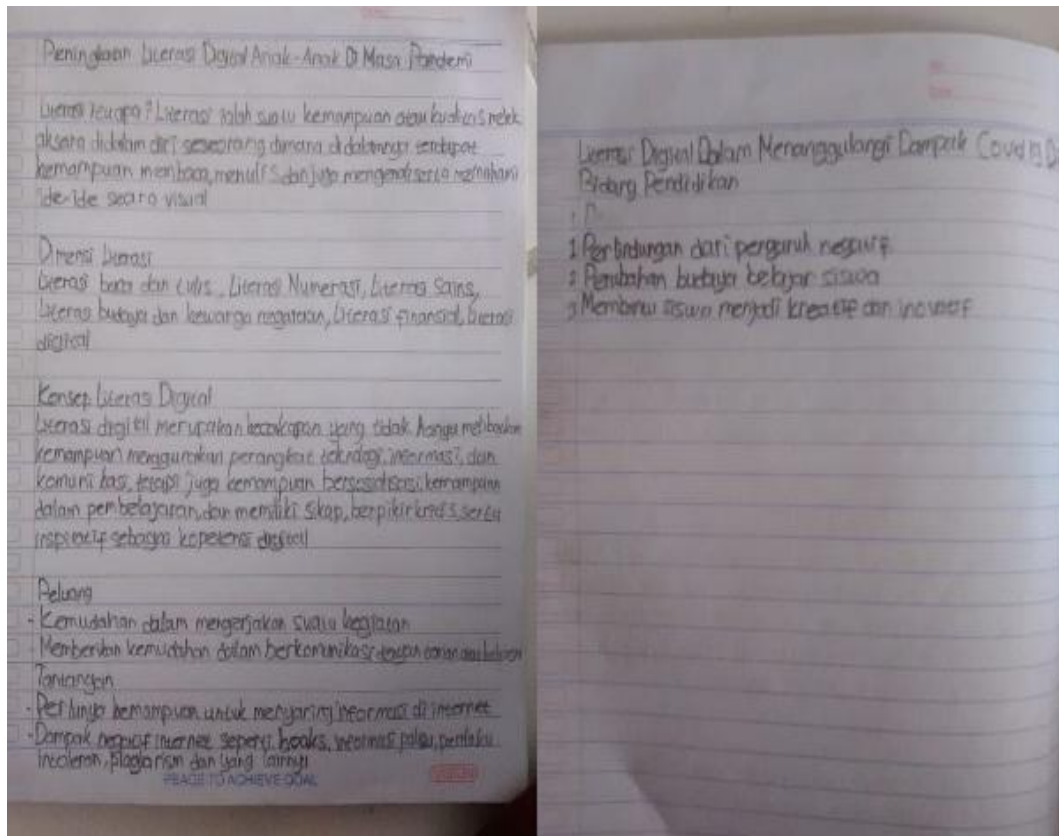 Peningkatan Literasi Digital Anak-Anak Di Masa Pandemi
Literasi itu apa? Literasi ialah suatu kemampuan atau kualitas melek
aksara didalam diri seseorang dimana didalamnya terdapat
kemampuan membaca, menulis dan juga mengenali serta memahami
ide-ide secara visual
Dimensi Literasi
Literasi baca dan tulis, Literasi Numerasi, Literasi Sains,
Literasi budaya dan kewarga negaraan, Literasi finansial, Literasi
digital
Konsep Literasi Digital
Literasi digital merupakan kecakapan yang tidak hanya melibatkan
kemampuan menggunakan perangkat teknologi, informasi, dan
komunikasi, tetapi juga kemampuan bersosialisasi, kemampuan
dalam pembelajaran, dan memiliki sikap, berpikir kritis serta
inspiratif sebagai kopetensi digital
Peluang
- Kemudahan dalam mengerjakan suatu kegiatan
- Memberikan kemudahan dalam berkomunikasi dengan
Tantangan
- Perlunya kemampuan untuk menyaring informasi di internet
- Dampak negatif internet seperti hoaks, informasi palsu, perilaku
intoleran, plagiarism dan yang lainnya
PEACE TO ACHIEVE GOAL
Literasi Digital Dalam Menanggulangi Dampak Covid 19 D
Bidang Pendidikan
1 Perlindungan dari pengaruh negatif
2 Perubahan budaya belajar siswa
3 Membantu siswa menjadi kreatif dan inovatif